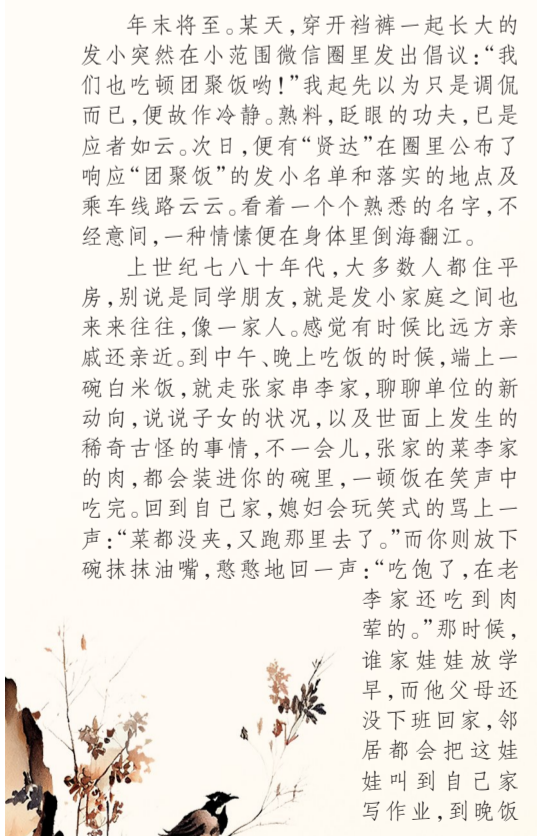 年末将至。某天,穿开裆裤一起长大的
发小突然在小范围微信圈里发出倡议:“我
们也吃顿团聚饭哟!”我起先以为只是调侃
而已,便故作冷静。熟料,眨眼的功夫,已是
应者如云。次日,便有“贤达”在圈里公布了
响应“团聚饭”的发小名单和落实的地点及
乘车线路云云。看着一个个熟悉的名字,不
经意间,一种情愫便在身体里倒海翻江。
上世纪七八十年代,大多数人都住平
房,别说是同学朋友,就是发小家庭之间也
来来往往,像一家人。感觉有时候比远方亲
戚还亲近。到中午、晚上吃饭的时候,端上一
碗白米饭,就走张家串李家,聊聊单位的新
动向,说说子女的状况,以及世面上发生的
稀奇古怪的事情,不一会儿,张家的菜李家
的肉,都会装进你的碗里,一顿饭在笑声中
吃完。回到自己家,媳妇会玩笑式的骂上一
声:“菜都没夹,又跑那里去了。”而你则放下
碗抹抹油嘴,憨憨地回一声:“吃饱了,在老
李家还吃到肉
荤的。”那时候,
谁家娃娃放学
早,而他父母还
没下班回家,邻
居都会把这娃
娃叫到自己家
写作业,到晚饭